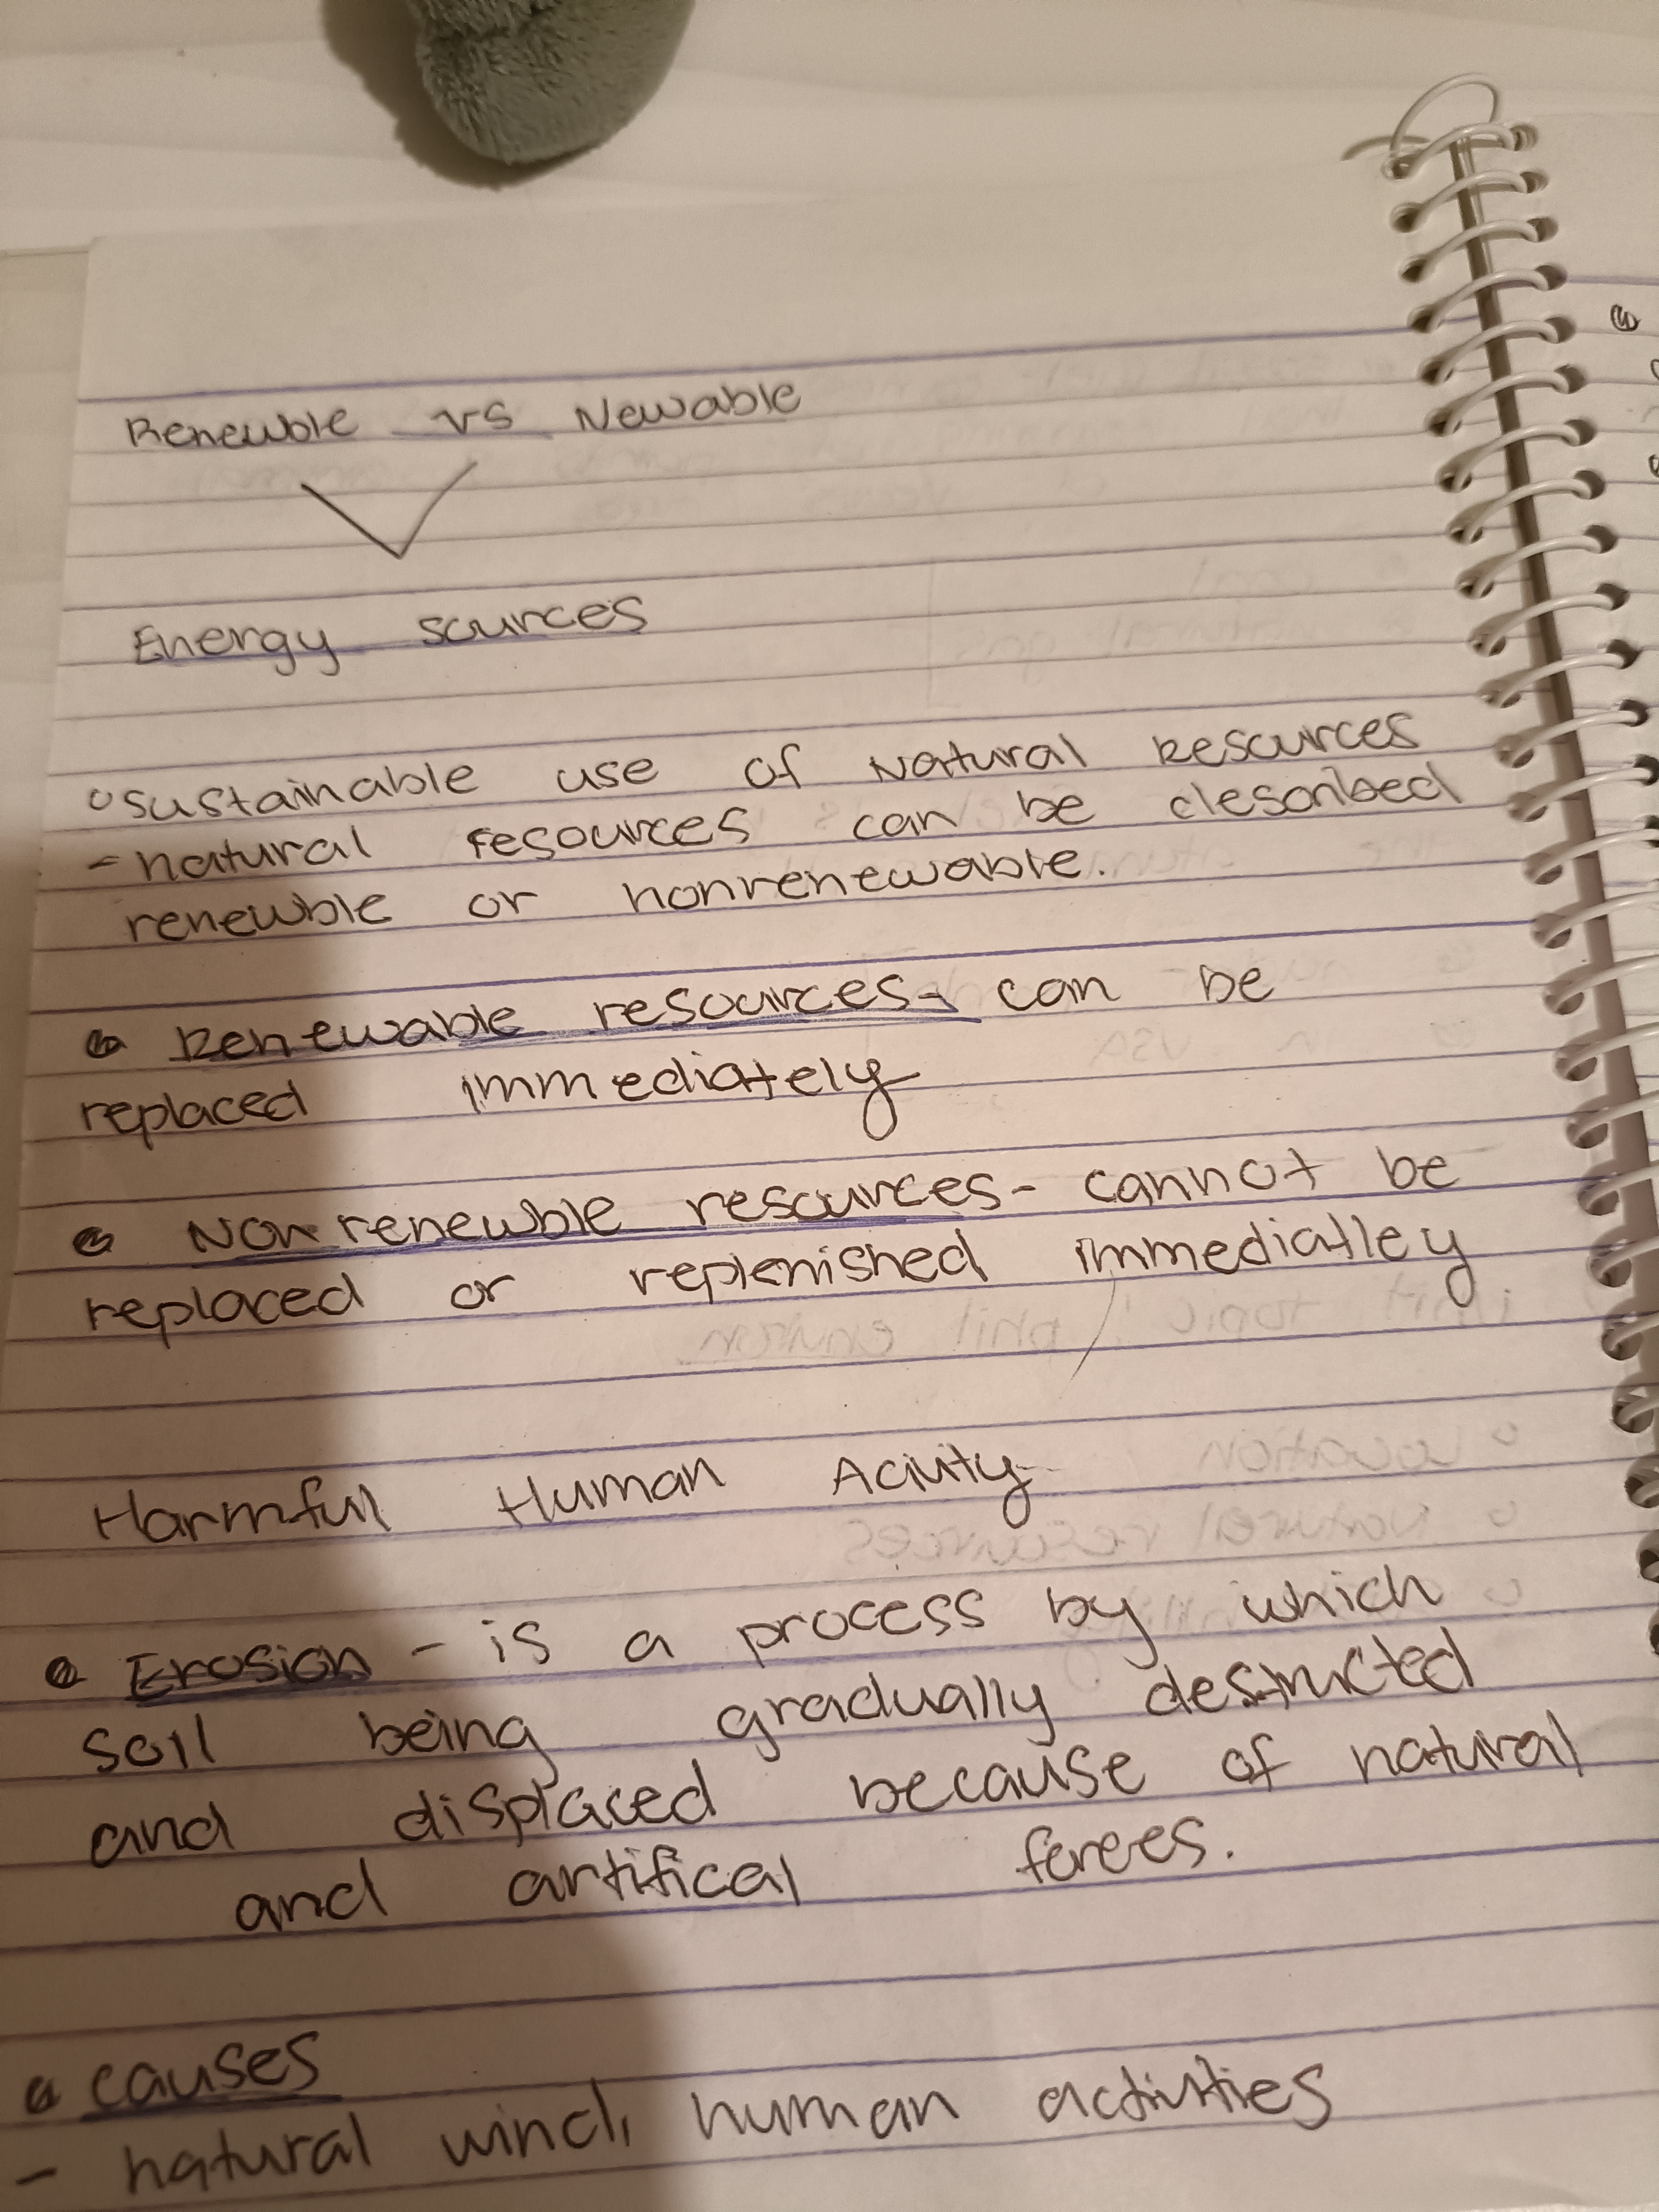 Renewble vs Newable
Energy sources
sustainable use of Natural Resources
- natural resources can be described
renewble or nonrenewable.
Renewable resources - can be
replaced immediately
Nonrenewble resources - cannot be
replaced or replenished immediatley
Harmfull Human Acivity
Erosion - is a process by which
soil being gradually destructed
and displaced because of natural
and artifical forces.
causes
- natural wind, human activities